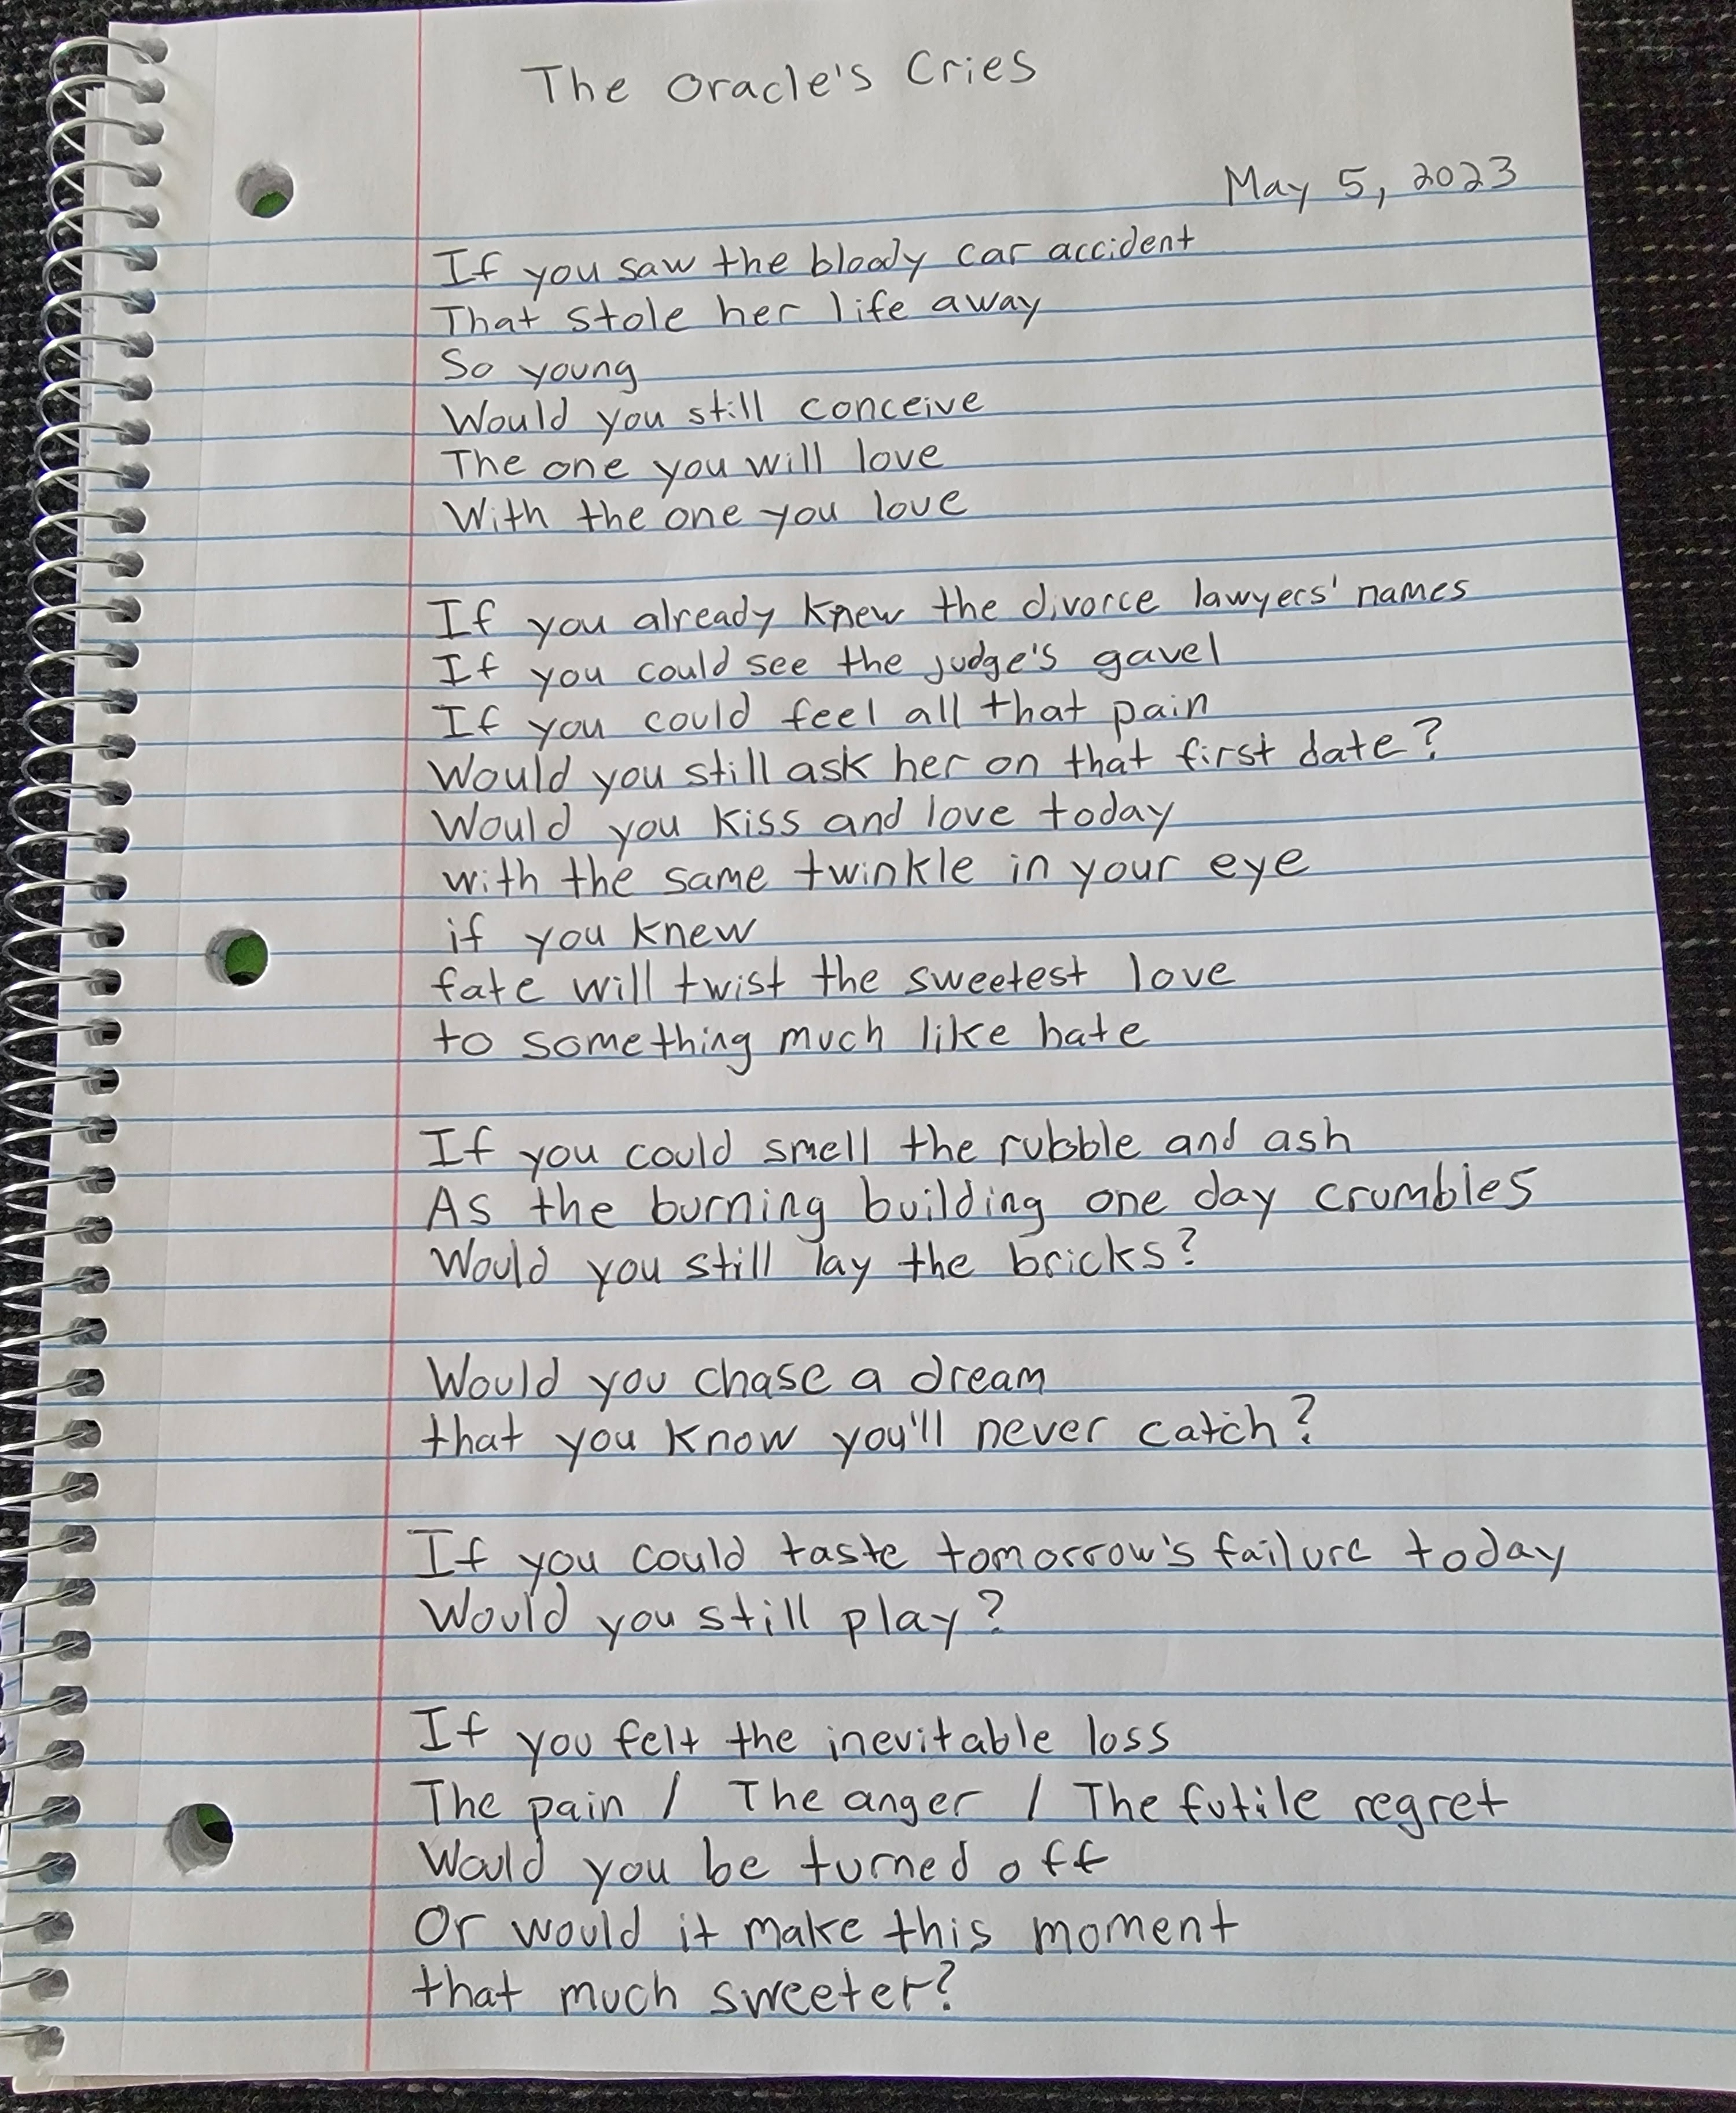 The Oracle's Cries
May 5, 2023
If you saw the bloody car accident
That stole her life away
So young
Would you still conceive
The one you will love
With the one you love
If you already knew the divorce lawyers' names
If you could see the judge's gavel
If you could feel all that pain
Would you still ask her on that first date?
Would you kiss and love today
with the same twinkle in your eye
if you knew
fate will twist the sweetest love
to something much like hate
If you could smell the rubble and ash
As the burning building one day crumbles
Would you still lay the bricks?
Would you chase a dream
that you know you'll never catch?
If you could taste tomorrow's failure today
Would you still play?
If you felt the inevitable loss
The pain / The anger / The futile regret
Would you be turned off
Or would it make this moment
that much sweeter?